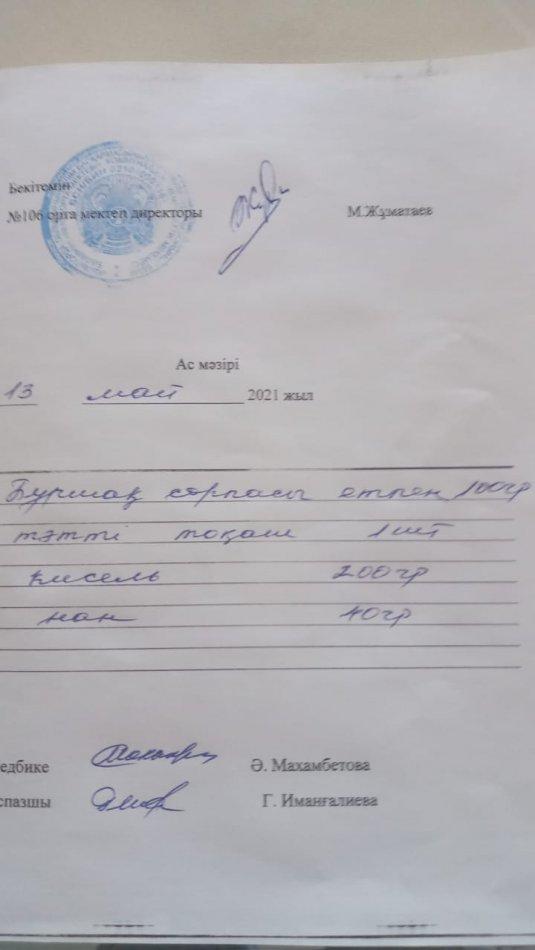 Бекітемін
№106 орта мектеп директоры М.Жұматаев
Ас мәзірі
13 май 2021 жыл
Бұршақ сорпасы етпен 100гр
тәтті тоқаш 1шт
кисель 200гр
нан 40гр
едбике Ә. Махамбетова
спазшы Г. Иманғалиева